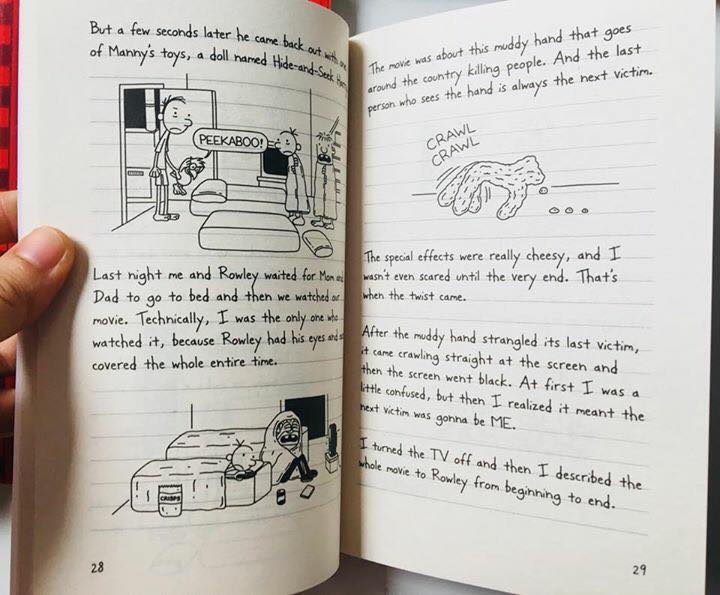 But a few seconds later he came back out with one
of Manny's toys, a doll named Hide-and-Seek
PEEKABOO!
Last night me and Rowley waited for Mom and
Dad to go to bed and then we watched our
movie. Technically, I was the only one who
watched it, because Rowley had his eyes and
covered the whole entire time.
CRISPS
28
The movie was about this muddy hand that goes
around the country killing people. And the last
person who sees the hand is always the next victim.
CRAWL
CRAWL
The special effects were really cheesy, and I
wasn't even scared until the very end. That's
when the twist came.
After the muddy hand strangled its last victim,
it came crawling straight at the screen and
then the screen went black. At first I was a
little confused, but then I realized it meant the
next victim was gonna be ME.
I turned the TV off and then I described the
whole movie to Rowley from beginning to end.
29